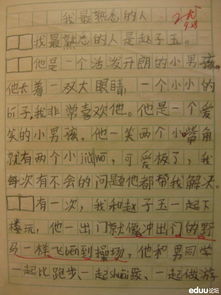 我最熟悉的人
我最熟悉的人是赵子玉。
他是一个活发开朗的小男孩。
他长着一双大眼睛，一个小小的
我非常喜欢他。他是一个爱
笑的小男孩。他一笑两个小嘴角
就有两个小酒窝，可爱极了，我
每次有不会的问题他都帮我解决
有一次，我和赵子玉一起下
楼玩，他一出门就像冲出门的野
马一样飞跑到操场，他和男同学
一起比跑步、一起做游
eduu论坛